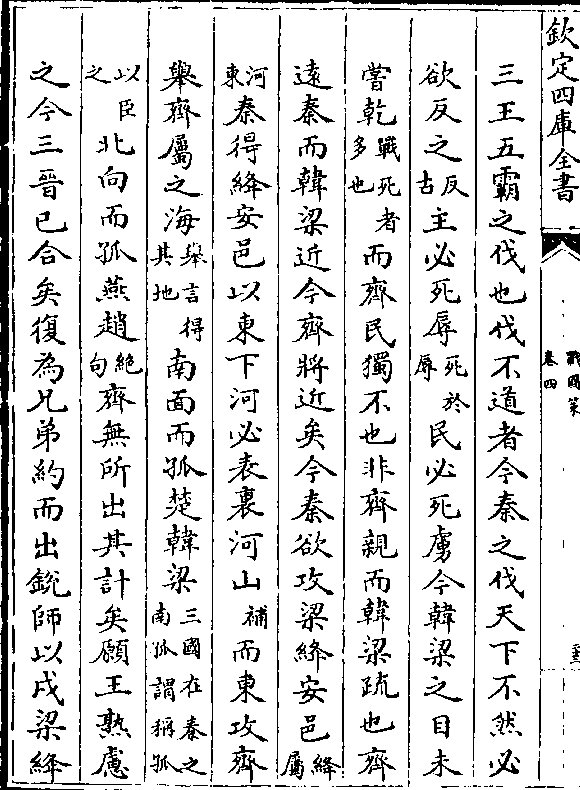 欽定四庫全書
戰國策
卷四
三王五霸之伐也伐不道者今秦之伐天下不然必
欲反之反古主必死辱死於辱民必死虜今韓梁之目未
嘗乾戰死者多也而齊民獨不也非齊親而韓梁疏也齊
遠秦而韓梁近今齊將近矣今秦欲攻梁絳安邑絳屬
河東秦得絳安邑以東下河必表裏河山補而東攻齊
舉齊屬之海舉言得其地南面而孤楚韓梁三國在秦之南孤謂稱孤
以臣之北向而孤燕趙絕句齊無所出其計矣願王熟慮
之今三晉已合矣復為兄弟約而出銳師以戍梁絳